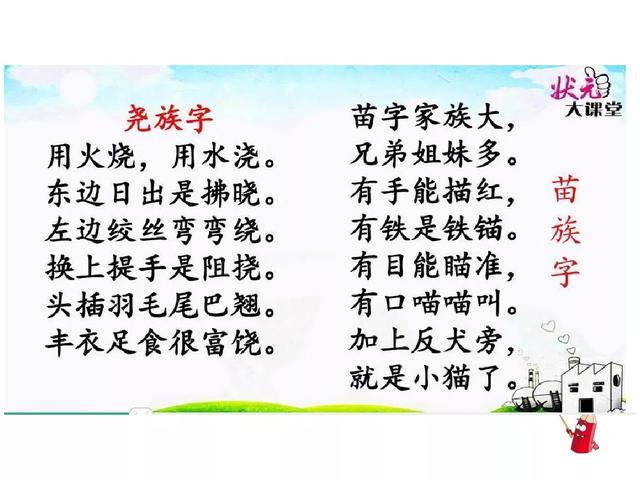 状元
大课堂
尧族字
用火烧，用水浇。
东边日出是拂晓。
左边绞丝弯弯绕。
换上提手是阻挠。
头插羽毛尾巴翘。
丰衣足食很富饶。
苗字家族大，
兄弟姐妹多。
有手能描红，
有铁是铁锚。
有目能瞄准，
有口喵喵叫。
加上反犬旁，
就是小猫了。
苗族字